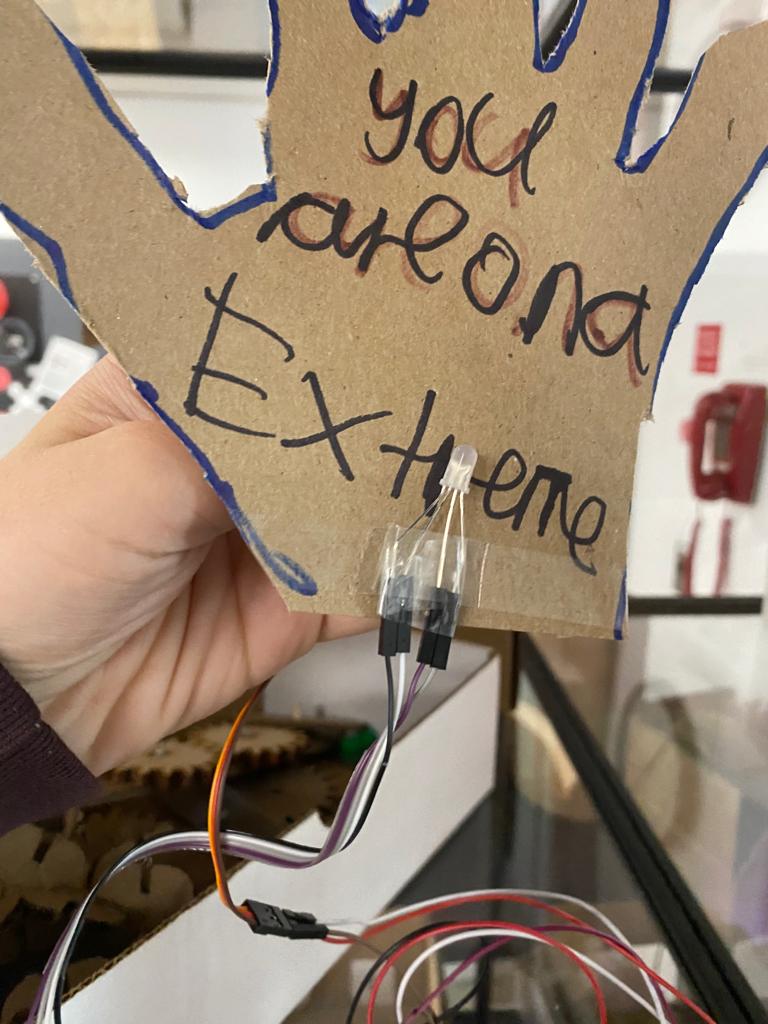 you
are on a
Extreme